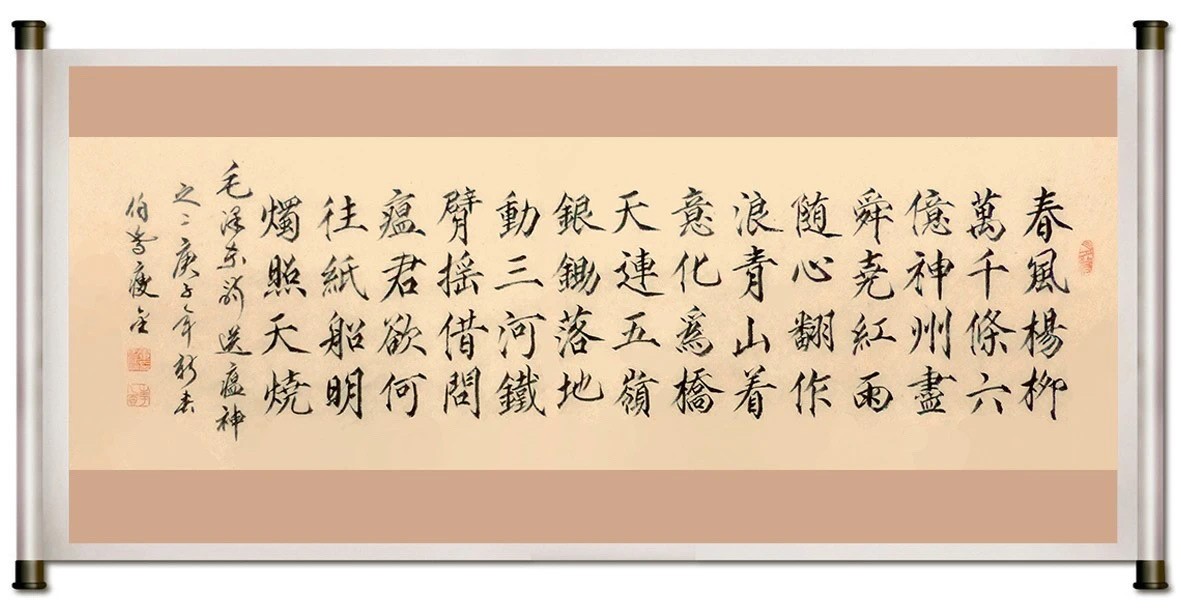 春風楊柳
萬千條六
億神州盡
舜堯紅雨
随心翻作
浪青山着
意化爲橋
天連五嶺
銀鋤落地
動三河鐵
臂摇借問
瘟君欲何
往紙船明
燭照天燒
毛泽东诗送瘟神
之二庚子年新春